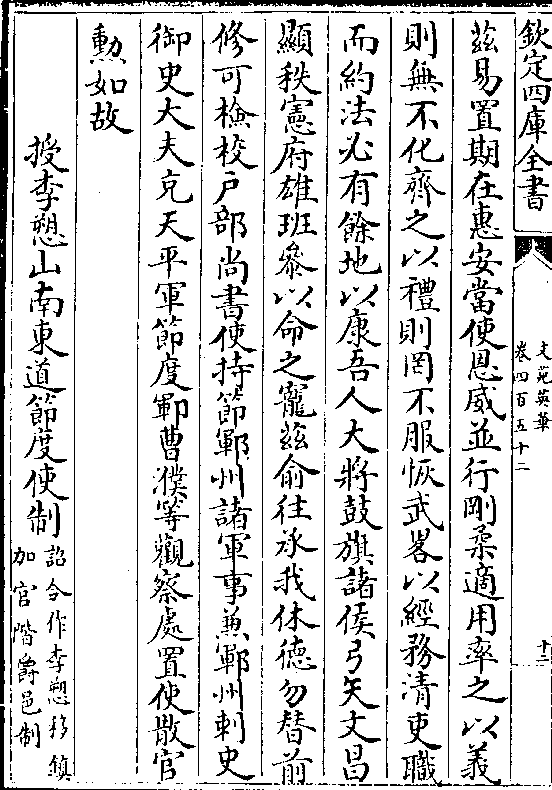 欽定四庫全書
文苑英華
卷四百五十二
十二
茲易置期在惠安當使恩威並行剛柔適用率之以義
則無不化齊之以禮則罔不服恢武畧以經務清吏職
而約法必有餘地以康吾人大將鼓旗諸侯弓矢文昌
顯秩憲府雄班叅以命之寵茲俞往承我休德勿替前
修可檢校戸部尚書使持節鄆州諸軍事兼鄆州刺史
御史大夫充天平軍節度鄆曹濮等觀察處置使散官
勲如故
授李愬山南東道節度使制
詔令作李愬移鎮
加官階爵邑制